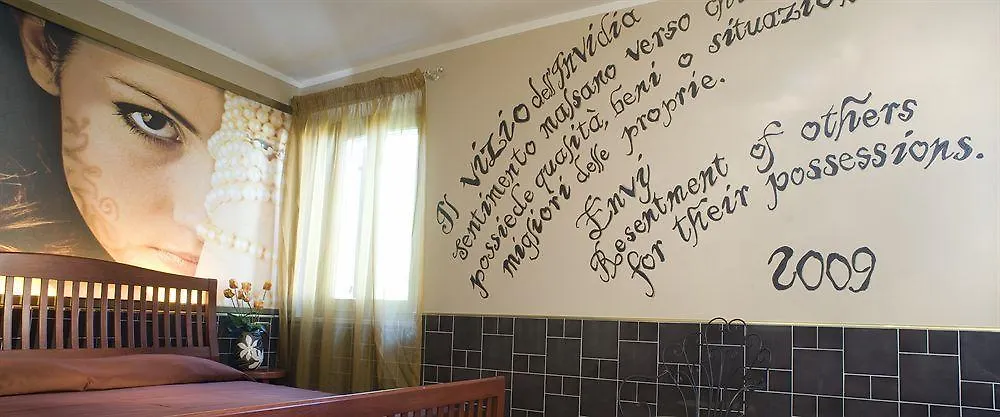 Il vizio dell'Invidia
sentimento malsano verso chi
possiede qualità, beni o situazioni
migliori delle proprie.
Envy
Resentment of others
for their possessions.
2009